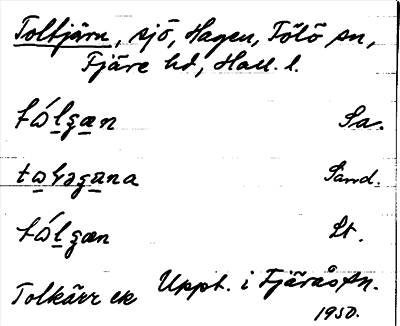 Toltjärn, sjö, Hagen, Tölö sn,
Fjäre hd, Hall. l.
tólgæn Sa.
Sand.
tólgæn Lt.
Tolkärr ek Uppt. i Fjärås sn.
1950.